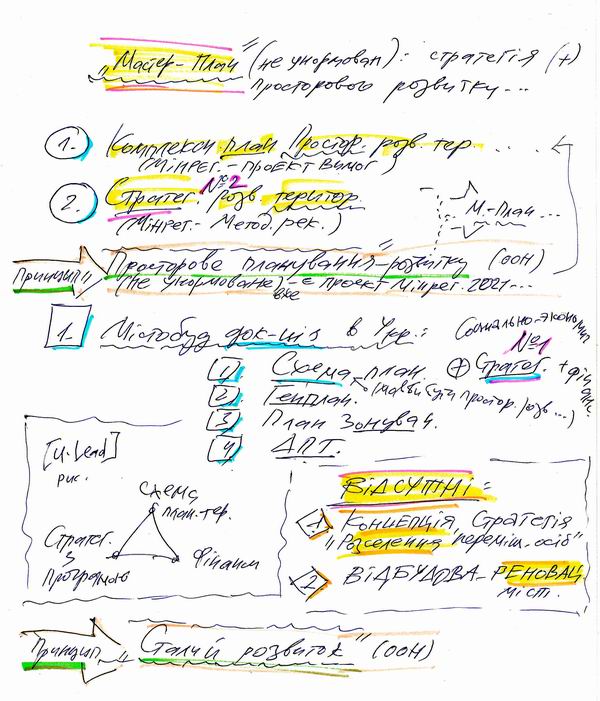 "Мастер-План" (не унормован): стратегія (+)
просторового розвитку...
1. Комплексн. план Простор. розв. тер. ....
(Мінрег. - проект вимог)
№2
2. Стратег. розв. територ.
(Мінрег. - Метод. рек.)
М.-План ...
Принцип "Просторове планування-розвитку" (ООН)
(не унормоване) - є проект Мінрег. 2021...
вже
1. Містобуд. док-ція в Укр.:
Соціально-економіч.
№1
1 Схема план. + Стратег. + фін
2 Генплан. (має бути простор. розв...)
3 План Зонуван.
4 ДПТ.
[U-Lead]
рис.
Схема
план. тер.
Стратег.
з
Програмою
Фінанси
ВІДСУТНІ:
1 Концепція, Стратегія
"Розселення переміщ. осіб"
2 ВІДБУДОВА-РЕНОВАЦ.
міст.
Принцип "Сталий розвиток" (ООН)